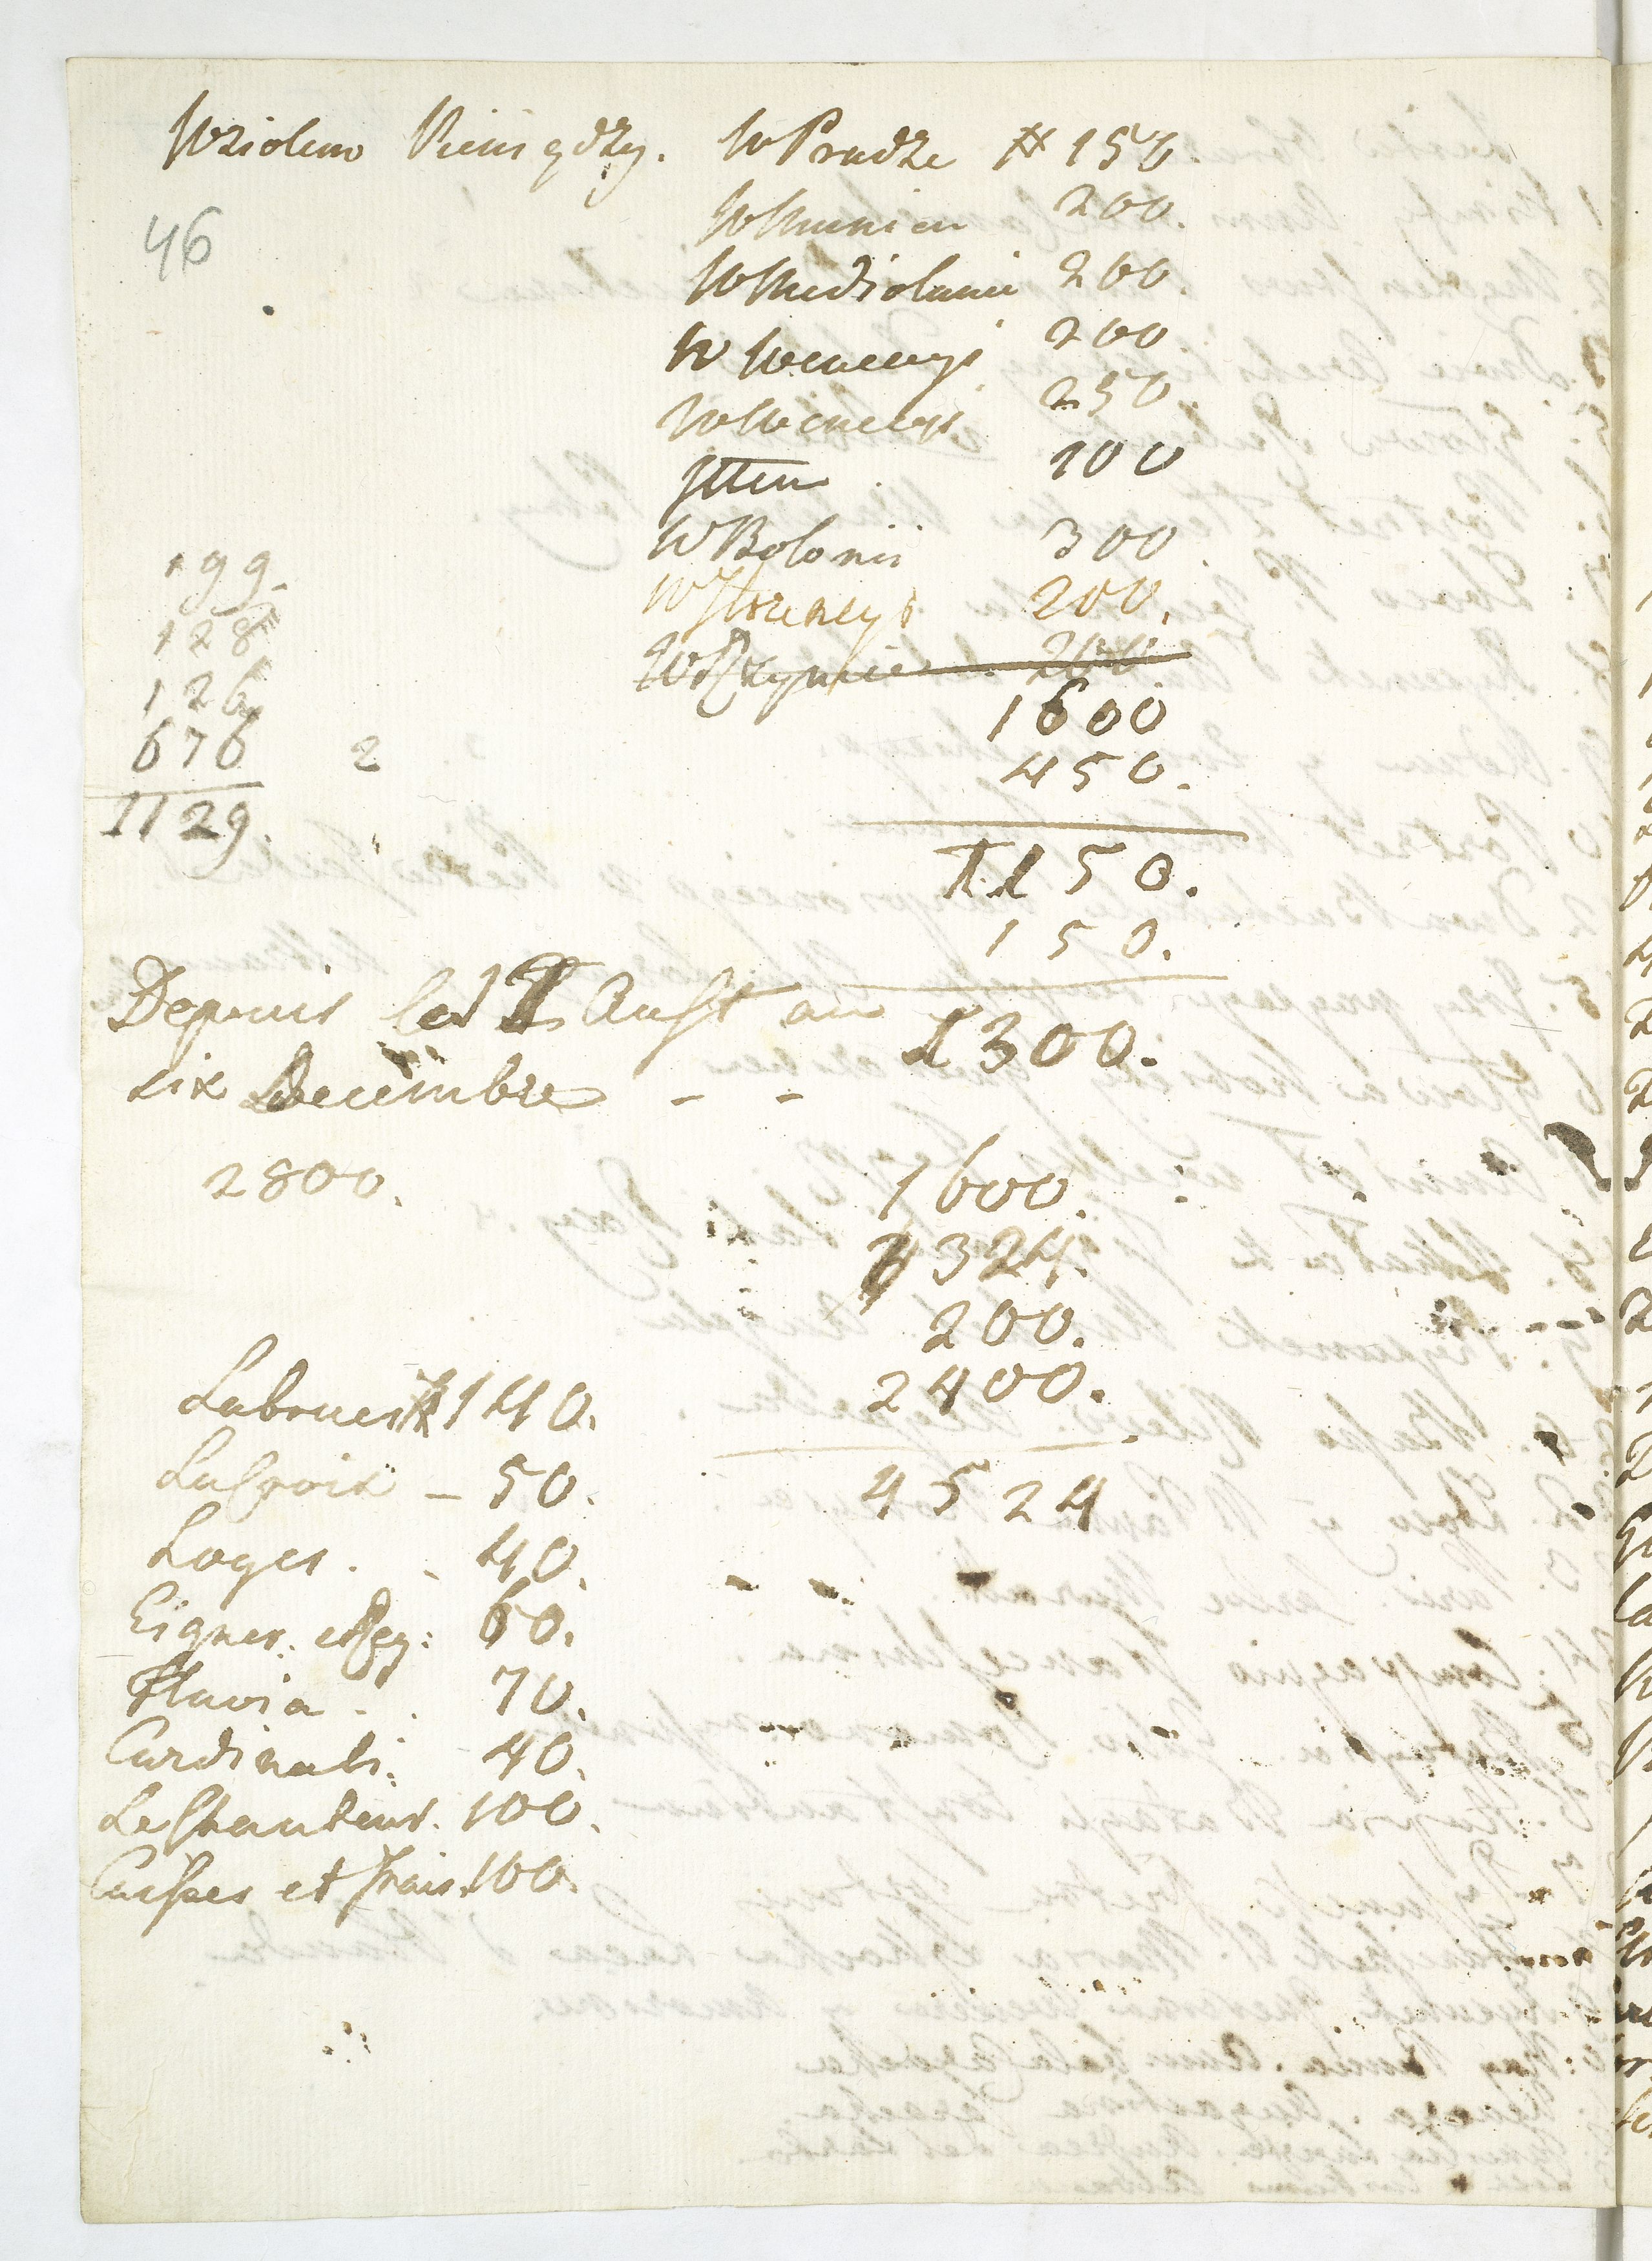 Wziolem Pieniędzy. W Pradze # 150
46
W Munien 200.
W Mediolanie 200.
W Wenecyi 200
W Wenecyi 250.
Ittem 100
W Bolonii 300
W Florencyi 200.
W Rzymie 200
1600
450.
1150.
150.
1300.
199.
128
126
676 2
1129.
Depuis le 1 Aust au
six Decembre - -
2800.
1600.
324.
200.
2400.
4524
Labrueir # 140.
LaCroix - 50.
Loges . . 40.
Eigner. et Reg: 60.
Flavia . . 70.
Cardinali: 40.
Le Chanteur. 100.
Caisses et frais. 100.